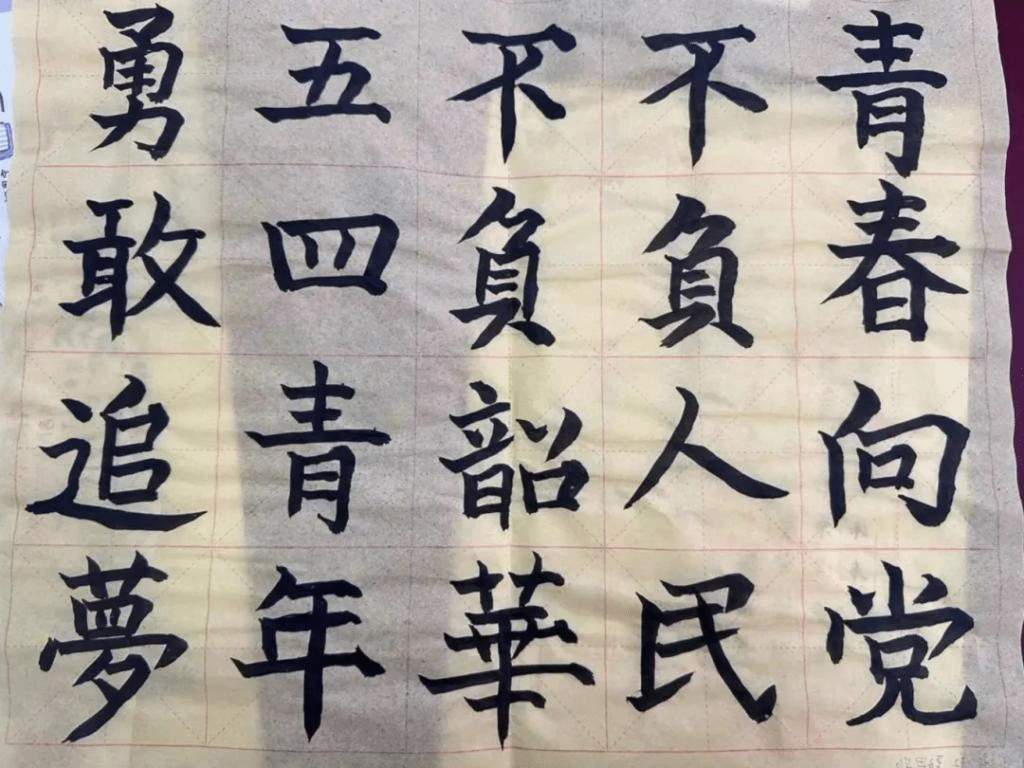 青春向党
不負人民
不負韶華
五四青年
勇敢追夢